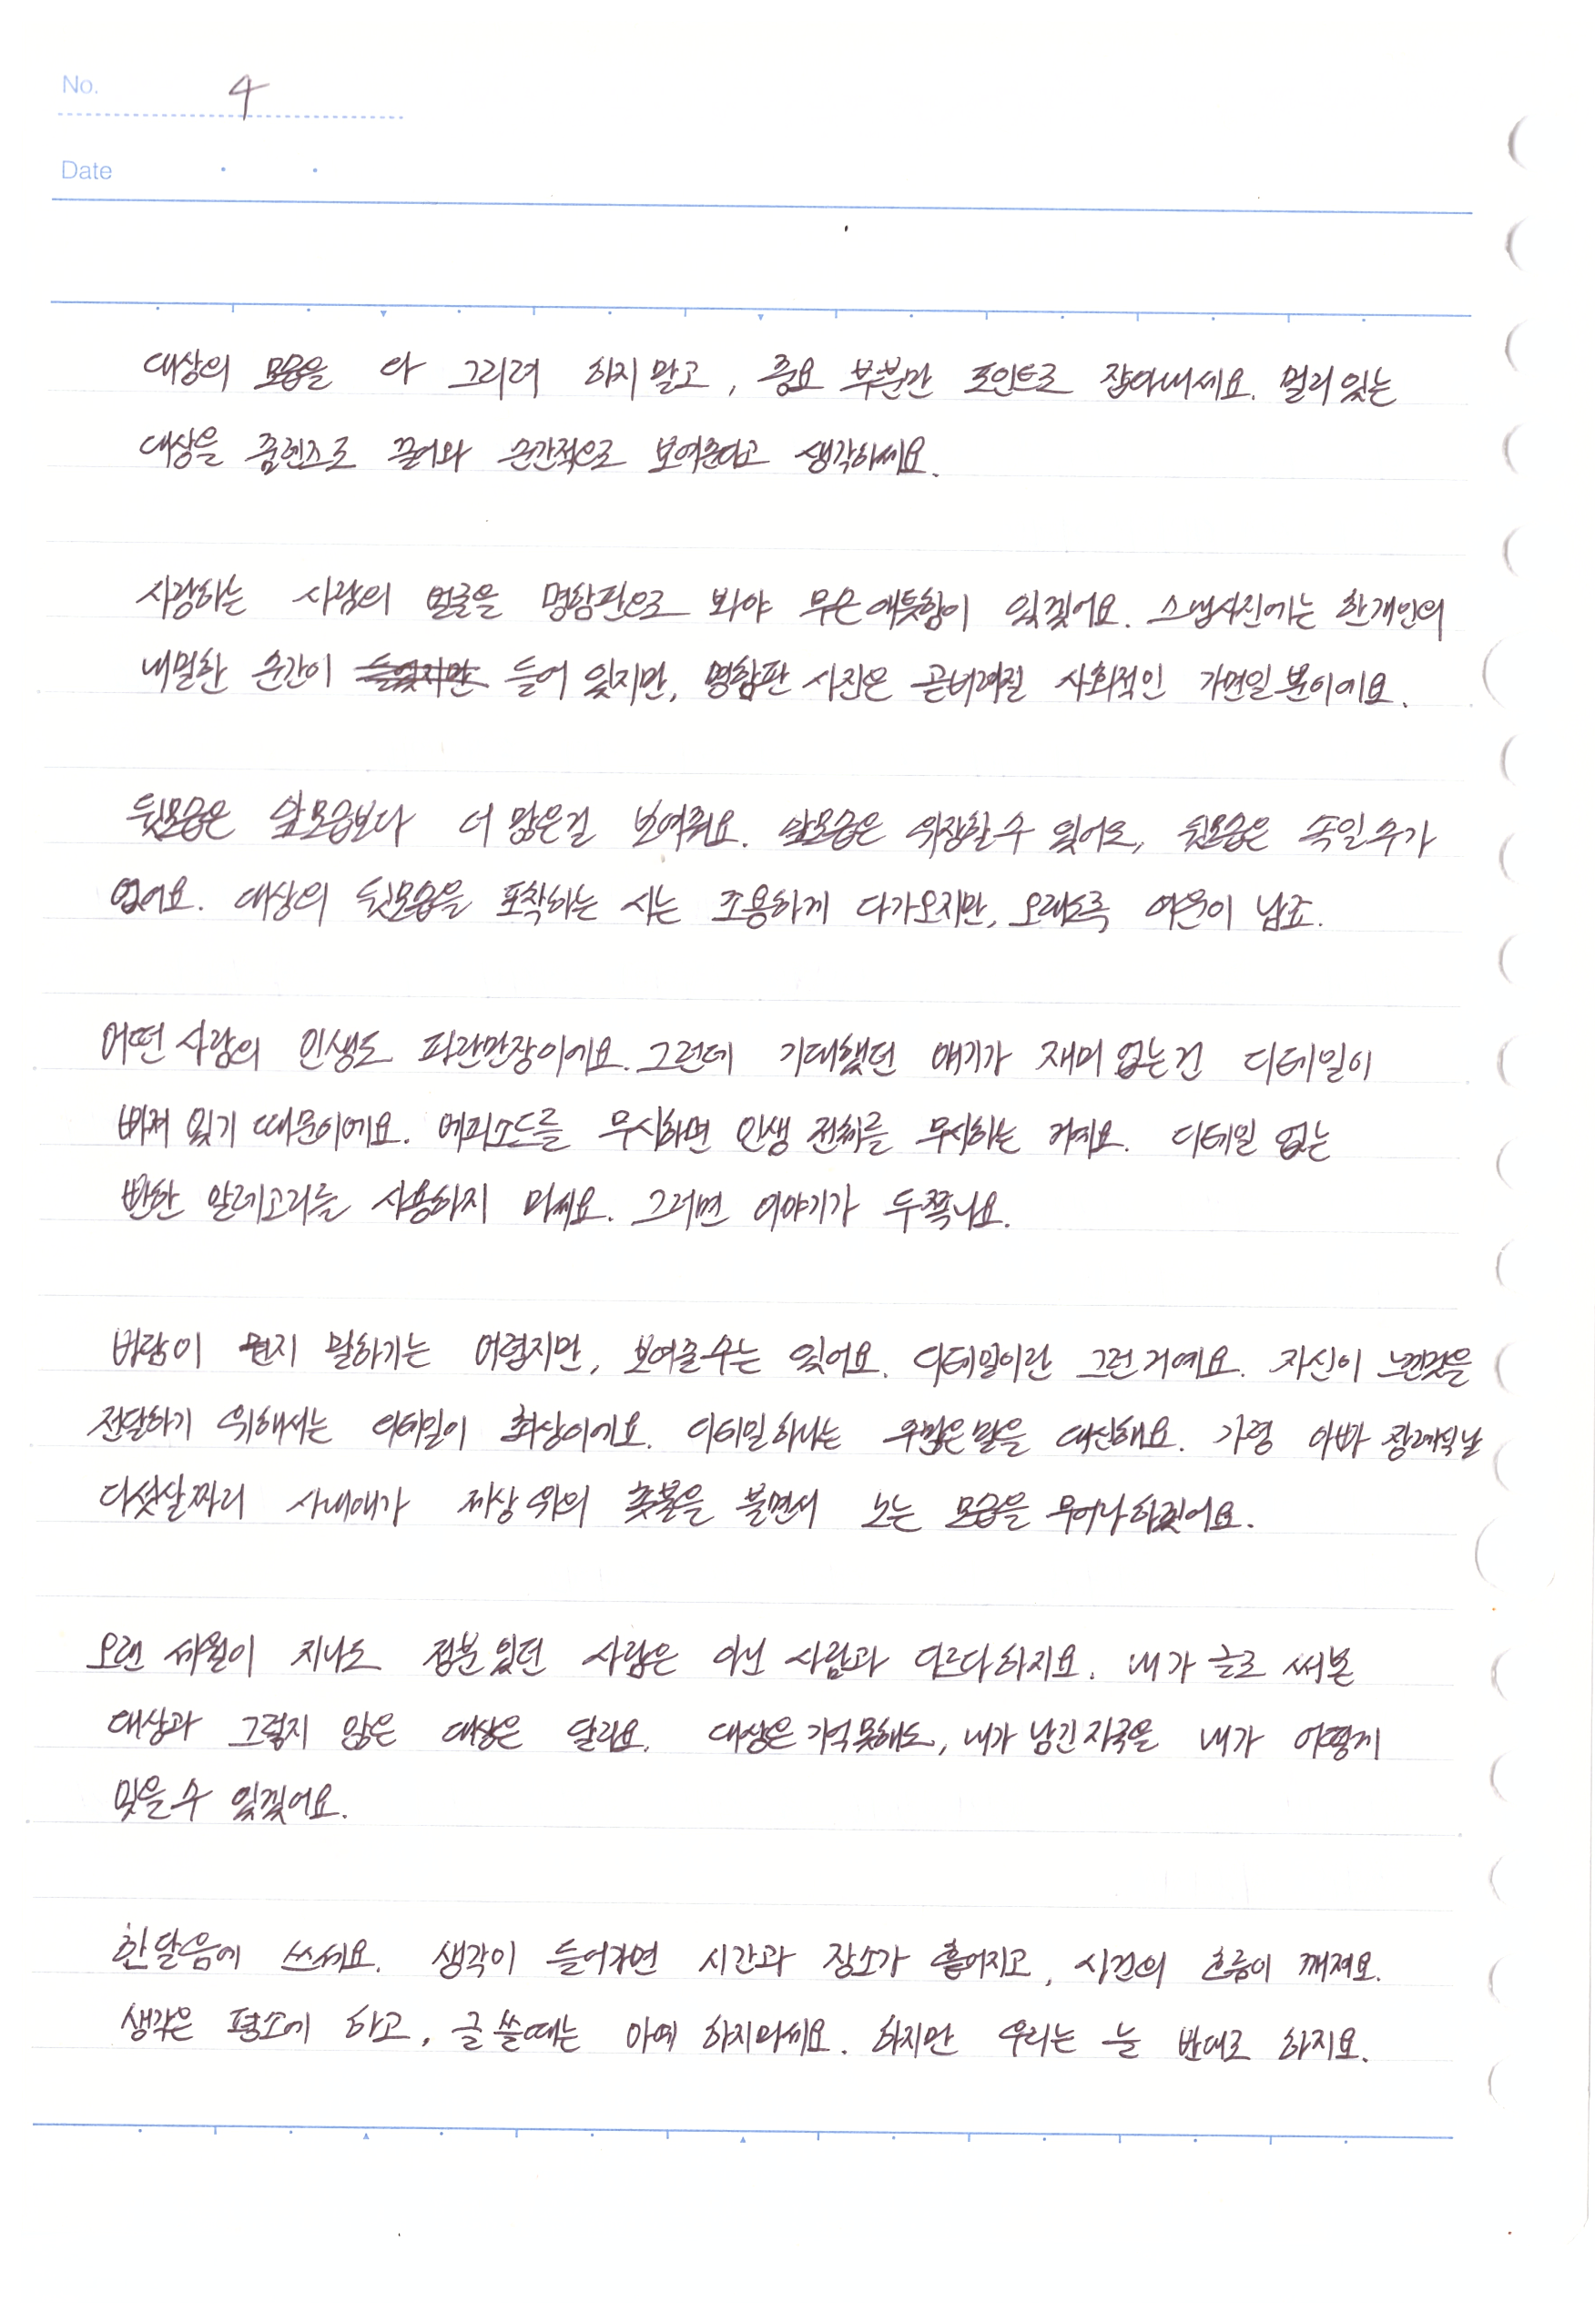 No. 4
Date
대상의 모습을 다 그리려 하지 말고, 중요 부분만 포인트로 잡아내세요. 멀리 있는
대상을 줌렌즈로 끌어와 순간적으로 보여준다고 생각하세요.
사랑하는 사람의 얼굴을 명함판으로 봐야 무슨 애틋함이 있겠어요. 스냅사진에는 한 개인의
내밀한 순간이 들어 있지만, 명함판 사진은 곧 버려질 사회적인 가면일 뿐이에요.
뒷모습은 앞모습보다 더 많은걸 보여줘요. 앞모습은 위장할 수 있어도, 뒷모습은 속일 수가
없어요. 대상의 뒷모습을 포착하는 시는 조용하게 다가오지만, 오래도록 여운이 남죠.
어떤 사람의 인생도 파란만장이에요. 그런데 기대했던 얘기가 재미 없는건 디테일이
빠져 있기 때문이에요. 에피소드를 무시하면 인생 전체를 무시하는 거예요. 디테일 없는
뻔한 알레고리를 사용하지 마세요. 그러면 이야기가 두 쪽나요.
바람이 뭔지 말하기는 어렵지만, 보여줄 수는 있어요. 디테일이란 그런 거예요. 자신이 느낀것을
전달하기 위해서는 디테일이 최상이에요. 디테일 하나는 수많은 말을 대신해요. 가령 아빠 장례식날
다섯살짜리 사내애가 제상 위의 촛불을 불면서 노는 모습을 무어라 하겠어요.
오랜 세월이 지나도 접분 있던 사람은 아닌 사람과 다르다 하지요. 내가 글로 써본
대상과 그렇지 않은 대상은 달라요. 대상은 기억 못해도, 내가 남긴 자국을 내가 어떻게
잊을 수 있겠어요.
한달음에 쓰세요. 생각이 들어가면 시간과 장소가 흩어지고, 사건의 흐름이 깨져요.
생각은 평소에 하고, 글 쓸때는 아예 하지마세요. 하지만 우리는 늘 반대로 하지요.